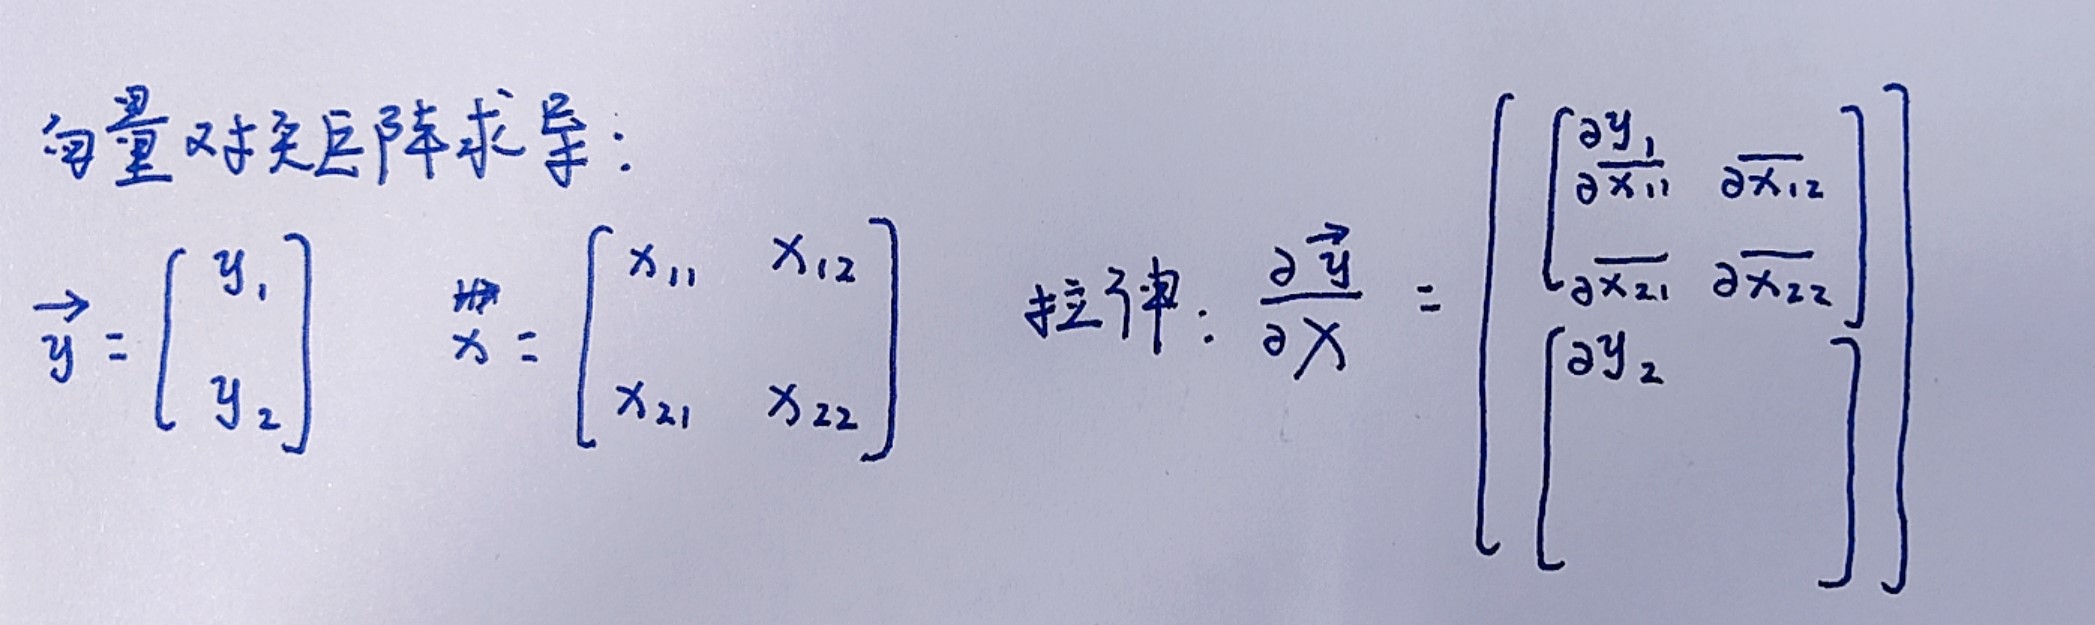 向量对矩阵求导:
y⃗ = [ y₁ y₂ ] x = [ x₁₁ x₁₂ x₂₁ x₂₂ ] 拉伸: ∂y⃗/∂X = [ [ ∂y₁/∂x₁₁ /∂x₁₂ /∂x₂₁ /∂x₂₂ ] [ ∂y₂ ] ]